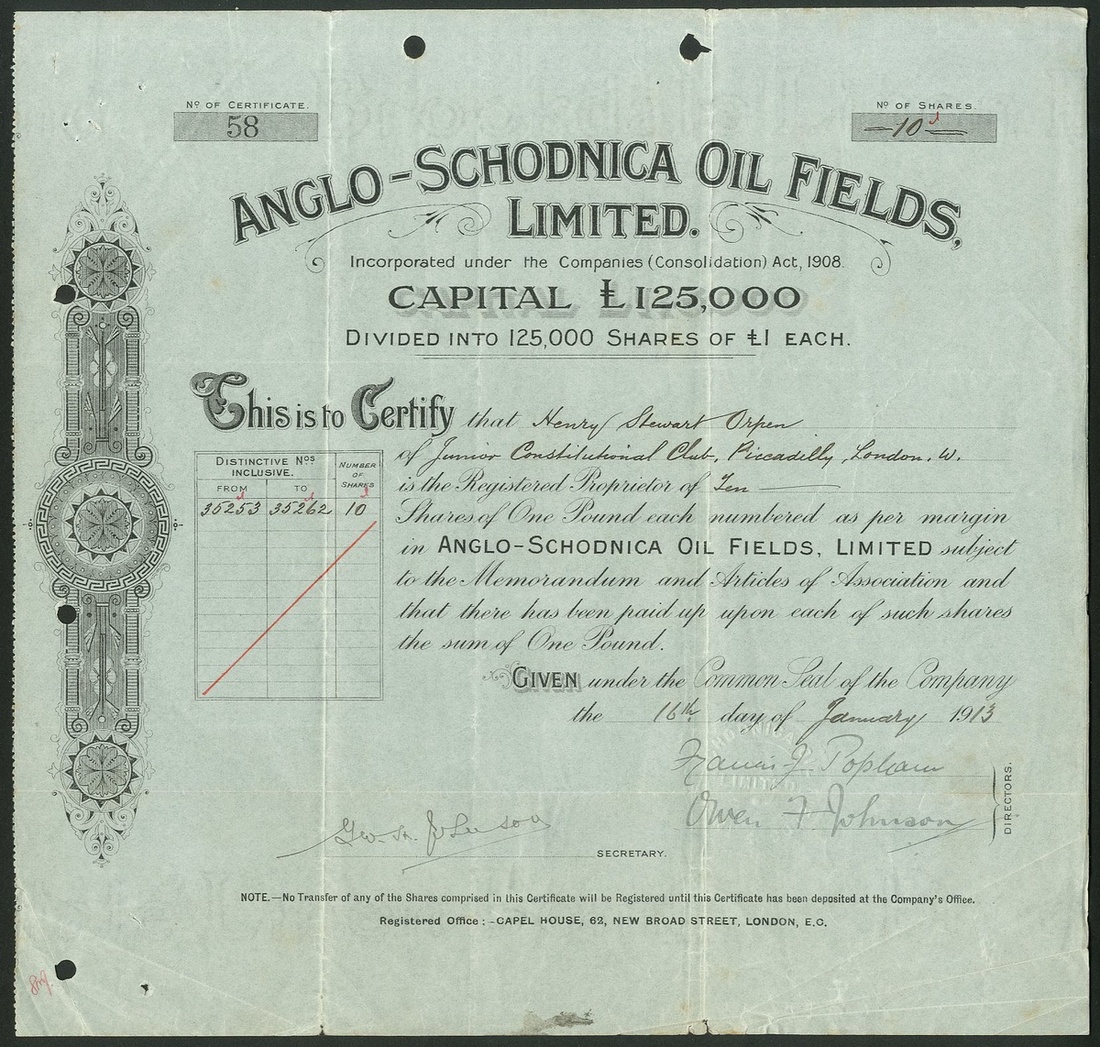 Nº OF CERTIFICATE.
58
Nº OF SHARES.
10
ANGLO-SCHODNICA OIL FIELDS,
LIMITED.
Incorporated under the Companies (Consolidation) Act, 1908.
CAPITAL £125,000
DIVIDED INTO 125,000 SHARES OF £1 EACH.
This is to Certify that Henry Stewart Orpen
of Junior Constitutional Club, Piccadilly, London. W.
is the Registered Proprietor of Ten
Shares of One Pound each numbered as per margin
in ANGLO-SCHODNICA OIL FIELDS, LIMITED subject
to the Memorandum and Articles of Association and
that there has been paid up upon each of such shares
the sum of One Pound.
DISTINCTIVE NOS INCLUSIVE.
NUMBER OF SHARES
FROM TO
35253 35262 10
GIVEN under the Common Seal of the Company
the 16th day of January 1913
Francis J. Popham
Owen F Johnson
DIRECTORS.
SECRETARY.
NOTE.—No Transfer of any of the Shares comprised in this Certificate will be Registered until this Certificate has been deposited at the Company's Office.
Registered Office :—CAPEL HOUSE, 62, NEW BROAD STREET, LONDON, E.C.